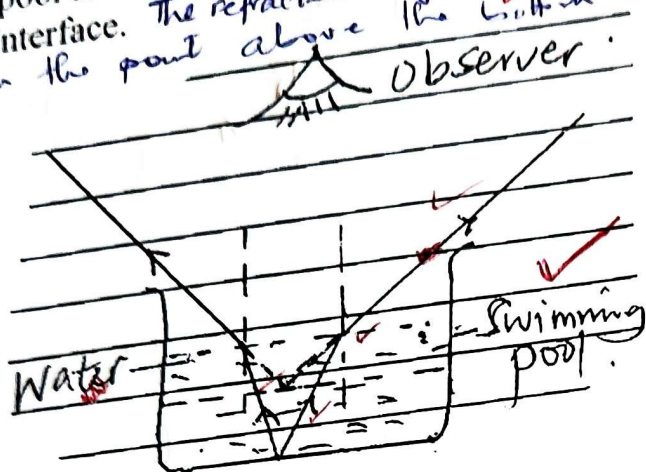 nterface. The refrac
the point above the bottom
Observer.
Swimming
pool.
Water